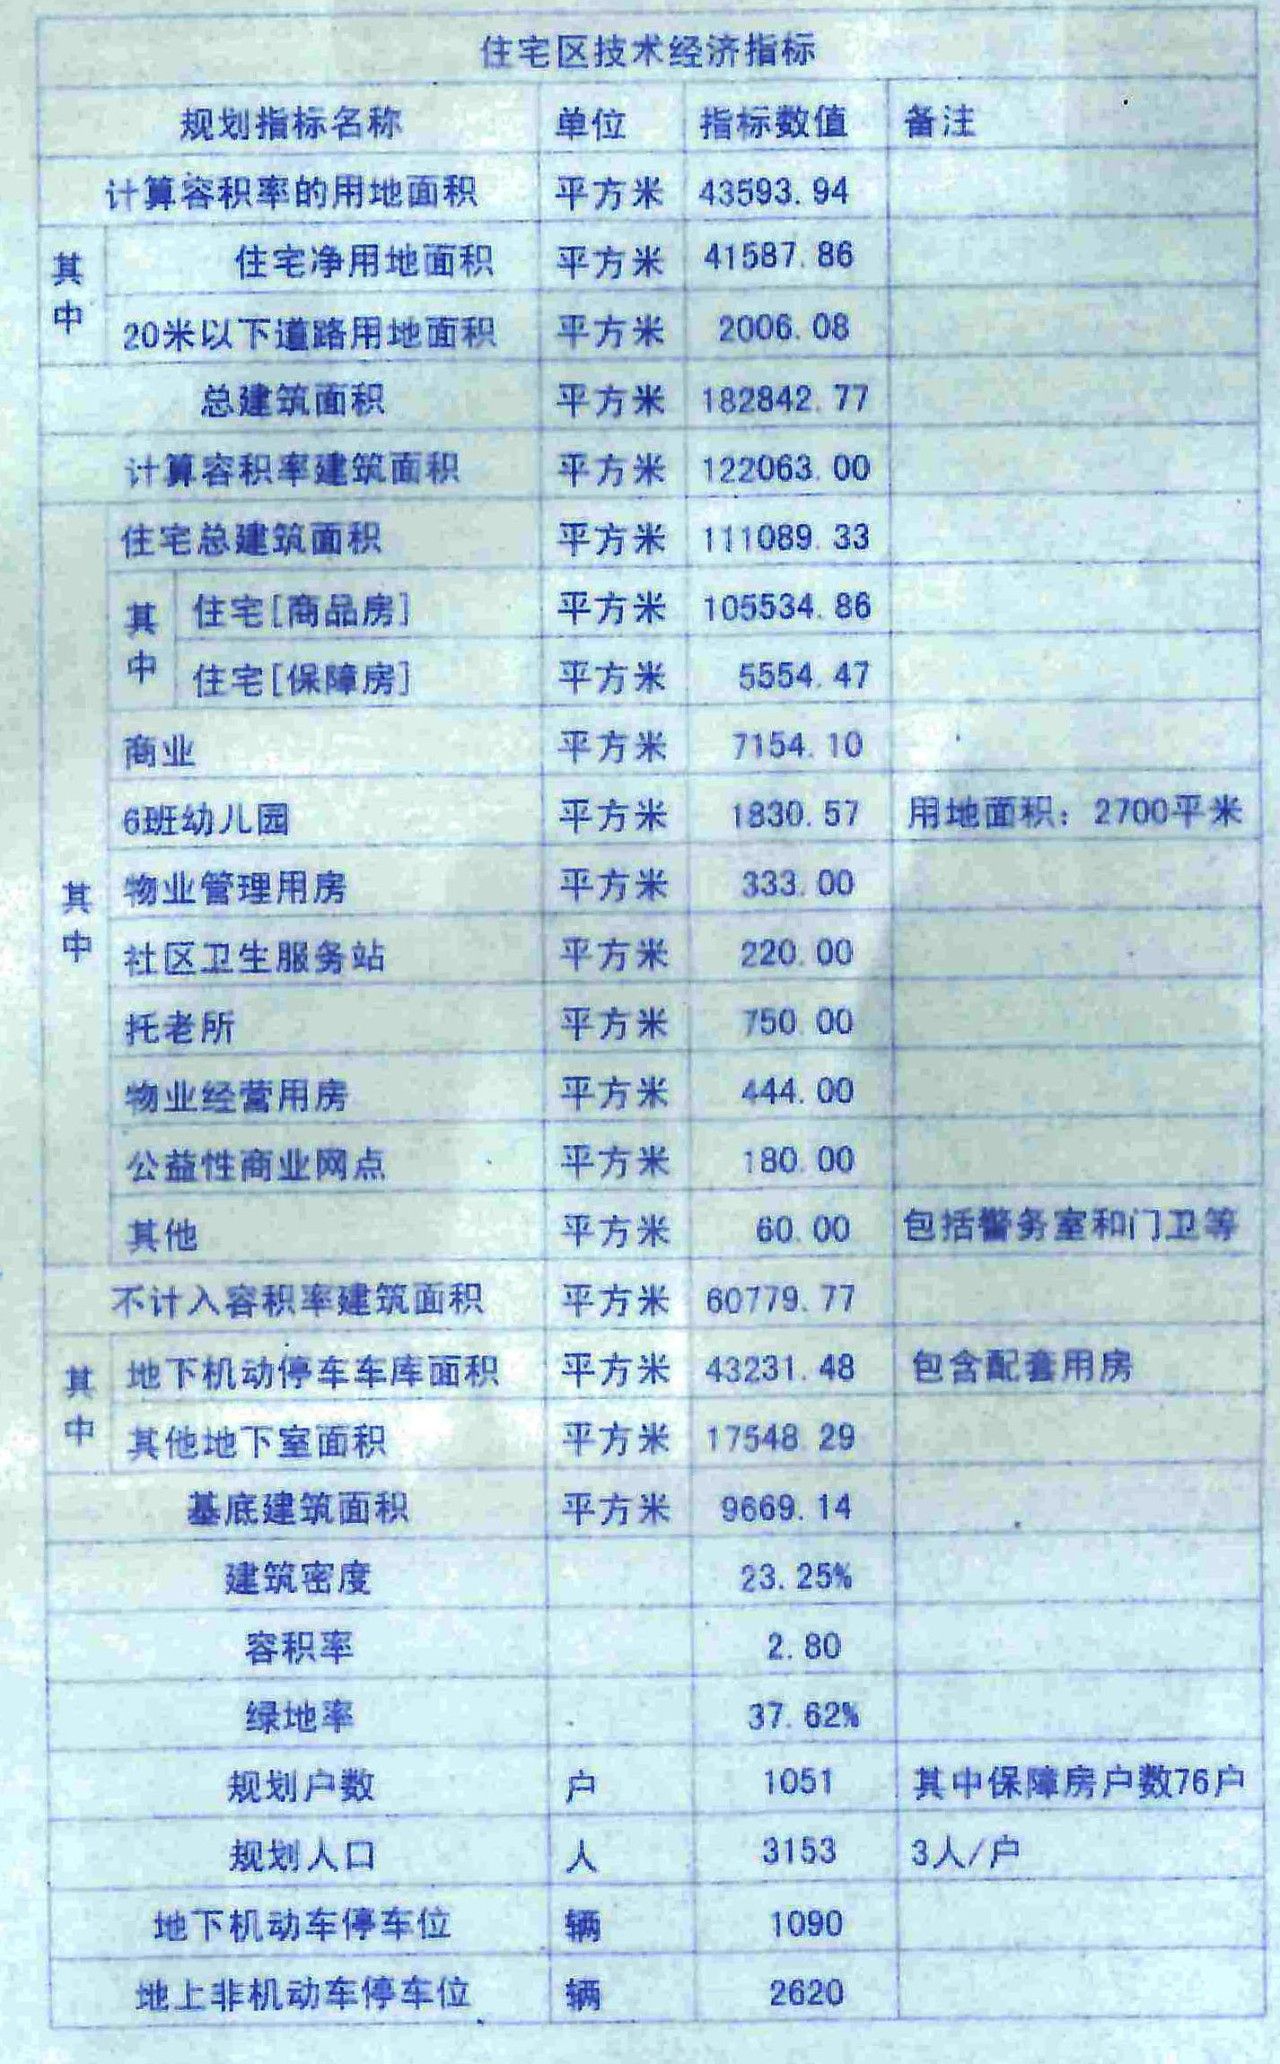 住宅区技术经济指标
规划指标名称 单位 指标数值 备注
计算容积率的用地面积 平方米 43593.94
其中
住宅净用地面积 平方米 41587.86
20米以下道路用地面积 平方米 2006.08
总建筑面积 平方米 182842.77
计算容积率建筑面积 平方米 122063.00
其中
住宅总建筑面积 平方米 111089.33
其中
住宅[商品房] 平方米 105534.86
住宅[保障房] 平方米 5554.47
商业 平方米 7154.10
6班幼儿园 平方米 1830.57 用地面积：2700平米
物业管理用房 平方米 333.00
社区卫生服务站 平方米 220.00
托老所 平方米 750.00
物业经营用房 平方米 444.00
公益性商业网点 平方米 180.00
其他 平方米 60.00 包括警务室和门卫等
不计入容积率建筑面积 平方米 60779.77
其中
地下机动停车车库面积 平方米 43231.48 包含配套用房
其他地下室面积 平方米 17548.29
基底建筑面积 平方米 9669.14
建筑密度 23.25%
容积率 2.80
绿地率 37.62%
规划户数 户 1051 其中保障房户数76户
规划人口 人 3153 3人/户
地下机动车停车位 辆 1090
地上非机动车停车位 辆 2620